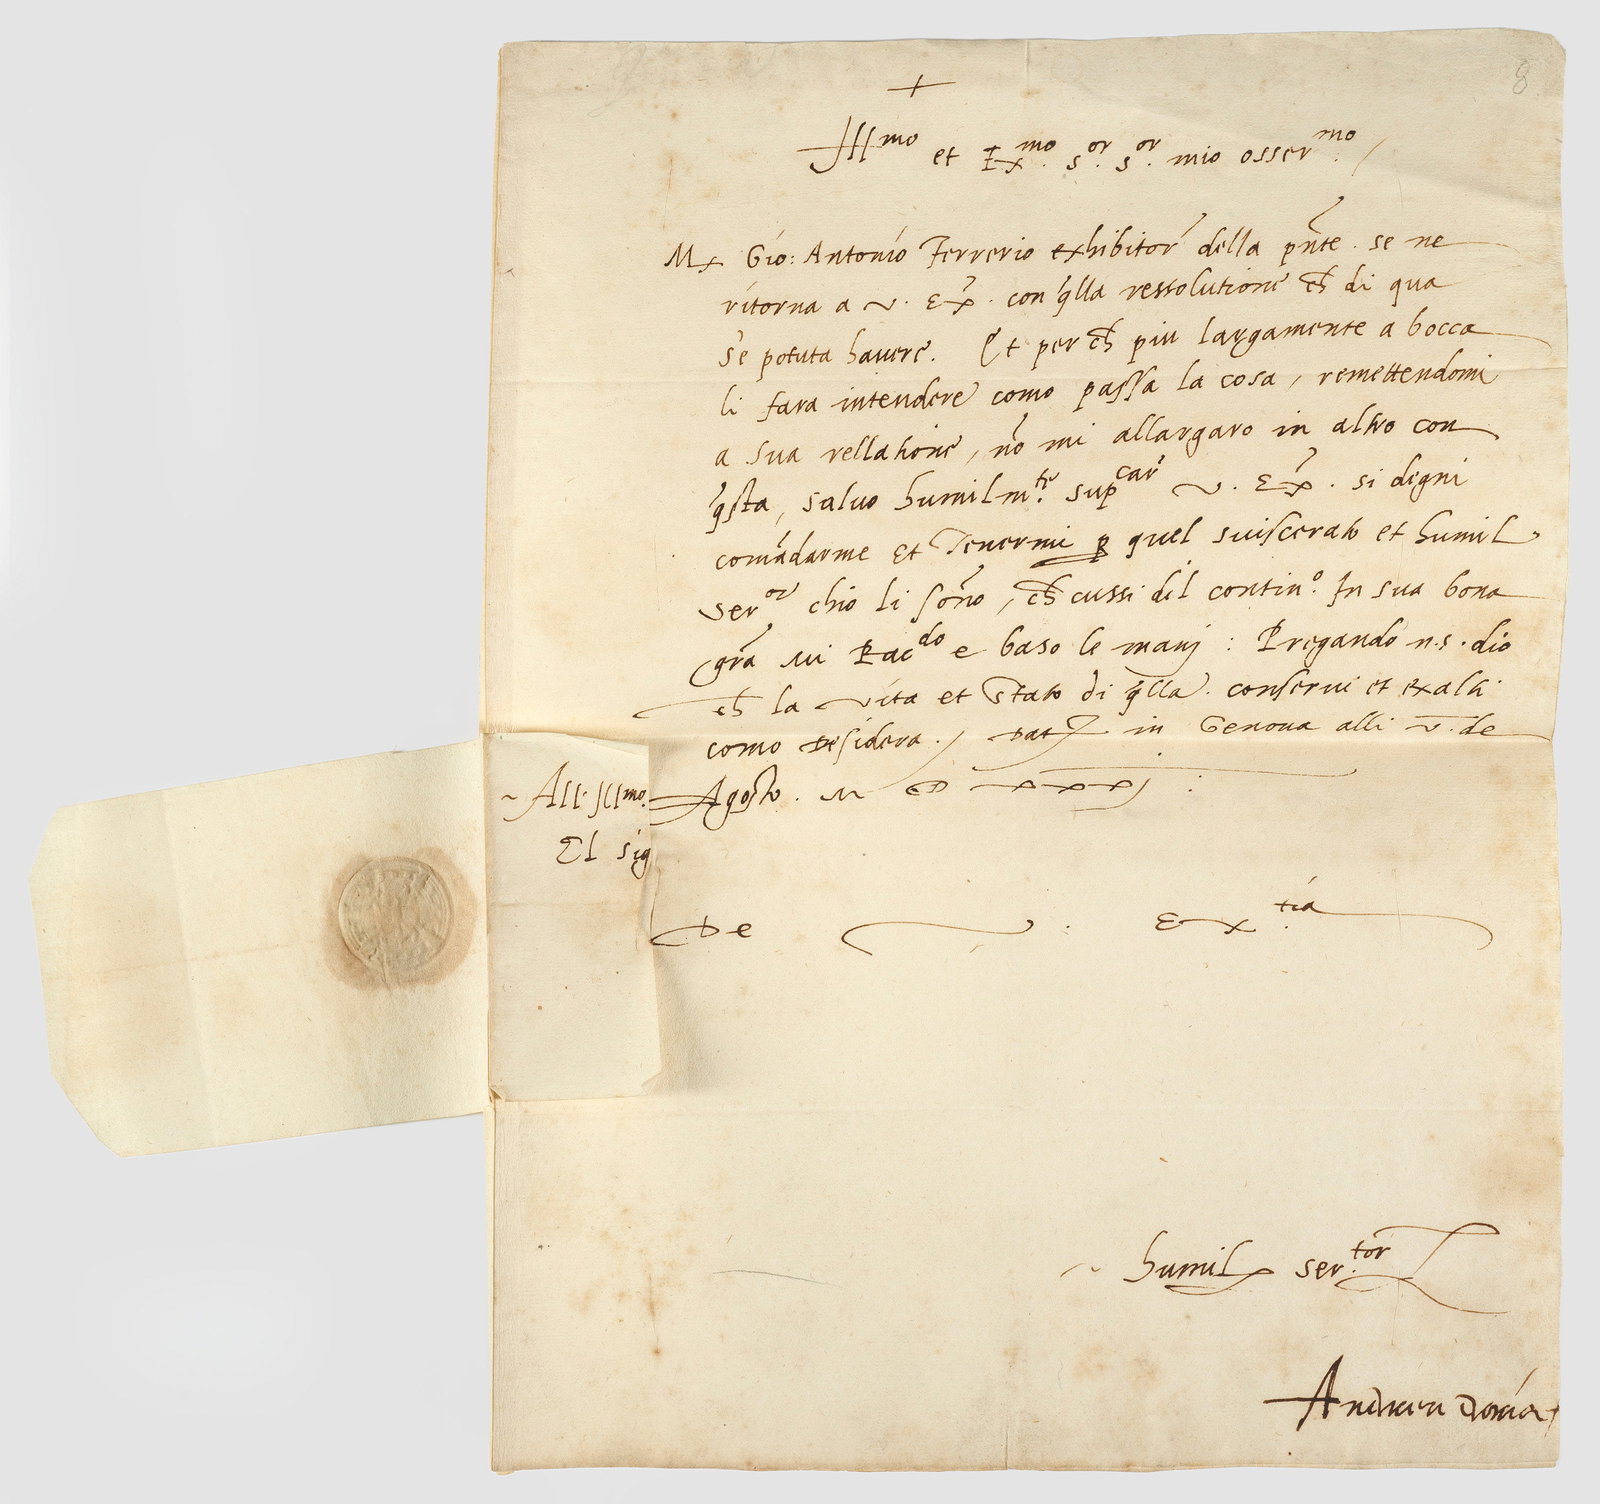 +
8
Ill^mo et Ex^mo. s^or. s^or. mio osser^mo.
Mx Gio: Antonio Ferrerio exhibitor della pn̄te. se ne
ritorna a v. Ex. con q̄lla ressolutione ch̄ di qua
s'e potuta havere. Et per ch̄ piu largamente a bocca
li fara intendere como passa la cosa, remettendomi
a sua rellatione, nō mi allargaro in altro con
q̄sta, salvo humilm^te. sup^car v. Ex. si degni
comādarme et Tenermi ꝑ quel suiscerato et humil
ser^or chio li sōno, ch̄ cussi dil contin^o. In sua bona
grā mi Rac^do e baso le manj: Pregando n.s. dio
ch̄ la vita et stato di q̄lla. conservi et exalti
como desidera. / Dat in Genova alli v. de
Agosto. M D xxxj:
All. Ill^mo.
El sig
De v. Ex^tia
humil ser^tor
Andrea Doria